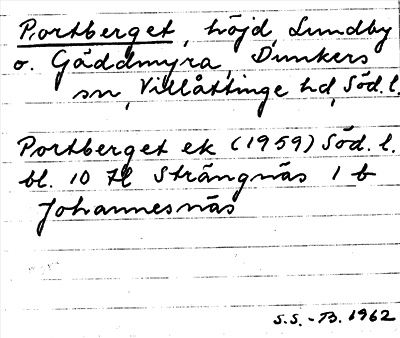 Portberget, höjd, Lundby
o. Gäddmyra, Dunkers
sn, Villåttinge hd, Söd. l.
Portberget ek (1959) Söd. l.
bl. 10 H Strängnäs 1 b
Johannesnäs
S.S. - B. 1962